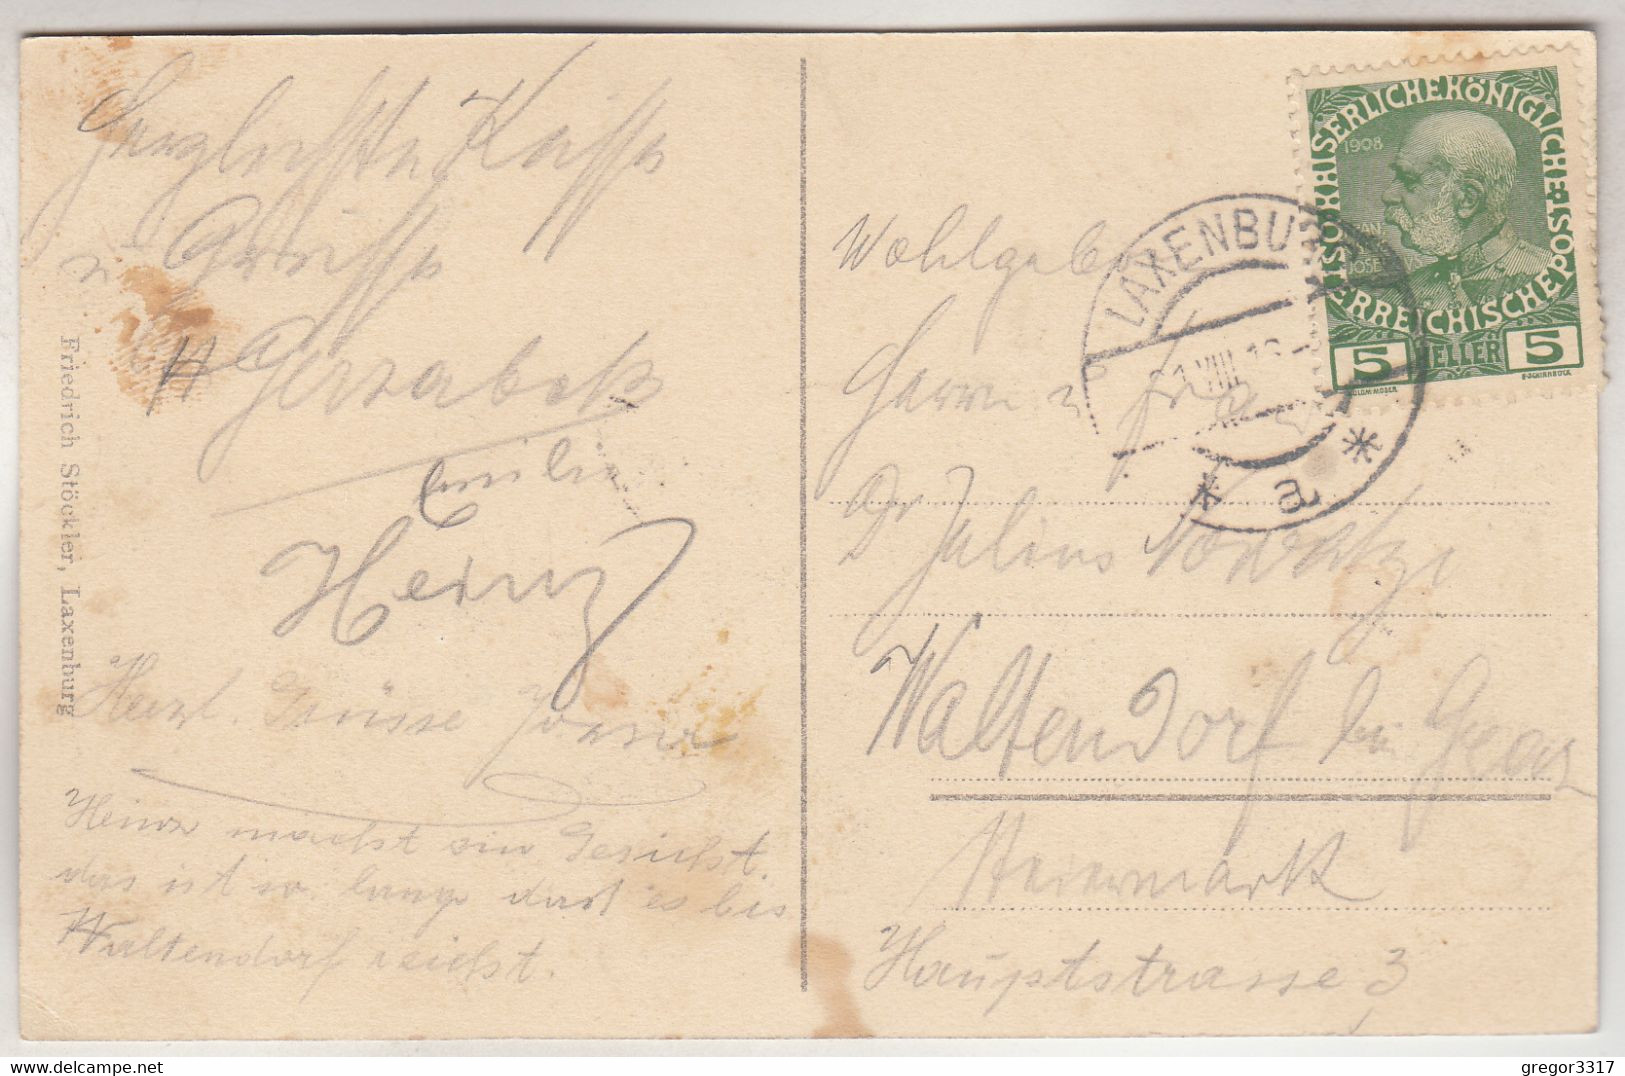 Herzlichste Küsse
u Grüsse
Emilie
Heinz
Herzl. Grüsse
Heinz macht ein Gesicht,
das ist so lange dass es bis
Waltendorf reicht.
Friedrich Stöckler, Laxenburg
Wohlgeboren
Herrn u Frau
Dr Julius
Waltendorf bei Graz
Steiermark
Hauptstrasse 3
LAXENBURG
VIII
a
KAISERLICHE KÖNIGLICHE ÖSTERREICHISCHE POST
1908
FRANZ JOSEF
5 HELLER 5
gregor3317